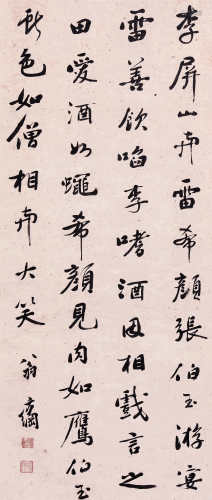 李屏山與雷希顏張伯玉游宴
雷善飲啗李嗜酒因相戲言之
田愛酒如蠅希顏見肉如鷹伯玉
色如僧相與大笑
翁方綱